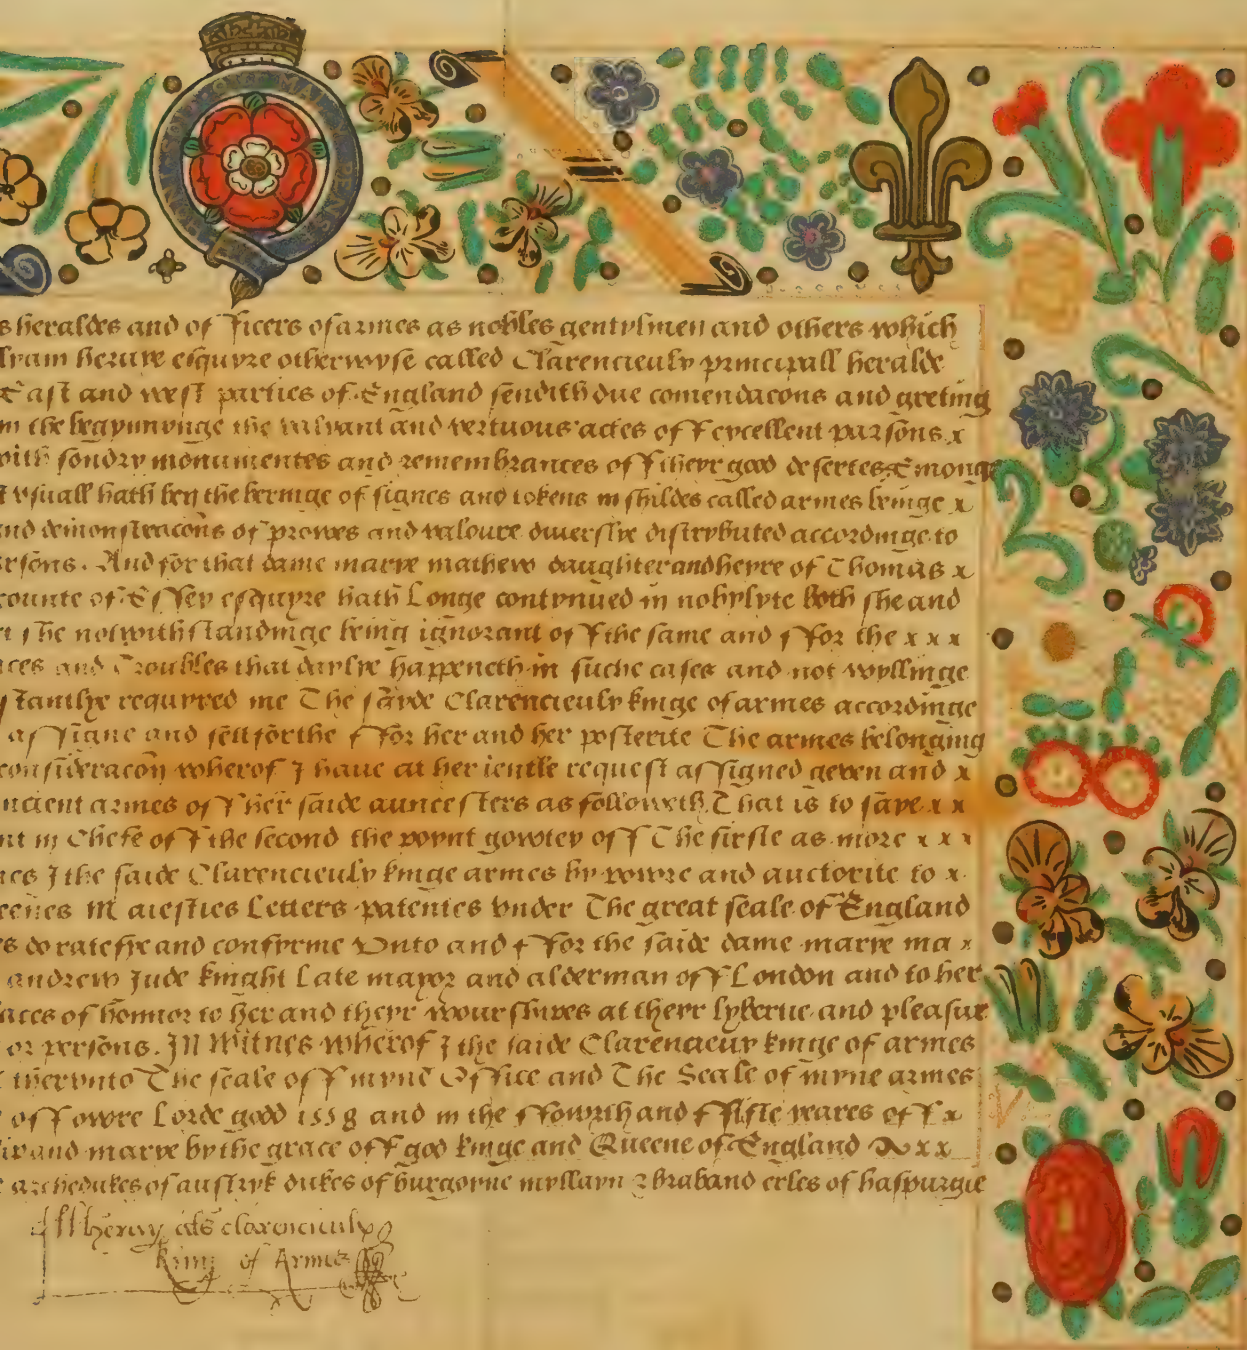 HONI SOIT QVI MAL Y PENSE
s heraldes and of ficers of armes as nobles gentylmen and others which
lyam hervye esquyre otherwyse called Clarencieulx principall heralde
East and west parties of England sendith due comendacons and greting
m the begynnynge the valyant and vertuous actes off excellent parsons x
with sondry monumentes and remembrances off theyr good desertes Emong
usuall hath ben the beringe of signes and tokens in shildes called armes beinge x
and demonstracons of prowes and valoure diverslye distrybuted accordinge to
rsons. And for that dame marye mathew daughter and heyre of Thomas x
counte of Essex esquyre hath Longe contynued in nobylyte both she and
she notwithstandinge being ignorant off the same and ffor the x x x
ces and Troubles that daylye happeneth in suche cases and not wyllinge
stantlye requyred me The sayde Clarencieulx kinge of armes accordinge
assigne and sett forthe ffor her and her posterite The armes belonging
consideracon wherof I have at her ientle request assigned geven and x
ncient armes off her saide auncesters as followeth That is to saye x x
nt in Chefe off the second the poynt gowtey off The firste as more x x x
es I the saide Clarencieulx kinge armes by powre and auctorite to x
eenes Maiesties Letters patentes Under The great seale of England
es do ratefye and confyrme Unto and ffor the saide dame marye ma x
andrew Jude knight Late mayor and alderman off London and to her
aces of honnor to her and theyr wourshipes at theyr lybertie and pleasure
or persons. IN Witnes wherof I the saide Clarencieux kinge of armes
therunto The seale off myne Office and The Seale of myne armes
off owre Lorde god 1558 and in the ffowrth and ffifte yeares off x
and marye by the grace off god kinge and Queene of England x x
archedukes of austryk dukes of burgoyne myllayn & braband erles of haspurgie
W hervy als clarencieulx
King of Armes